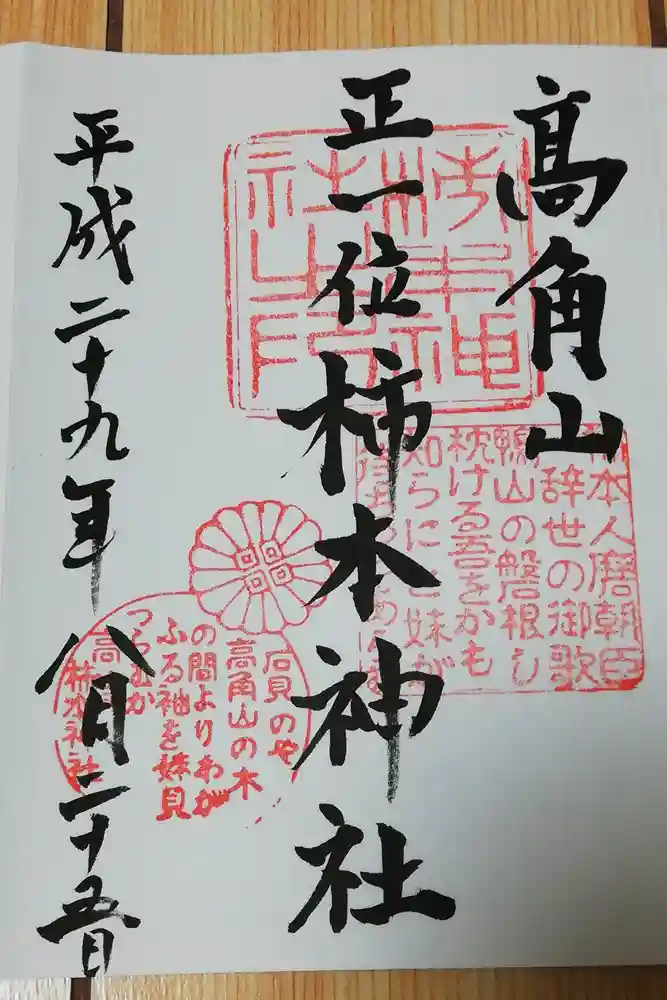 高角山
正一位柿本神社
平成二十九年八月二十五日
柿本人麿朝臣
辞世の御歌
鴨山の磐根し
枕ける吾をかも
知らにと妹が
石見のや
高角山の木
の間よりわが
ふる袖を妹見
つらむか
高角山
柿本神社